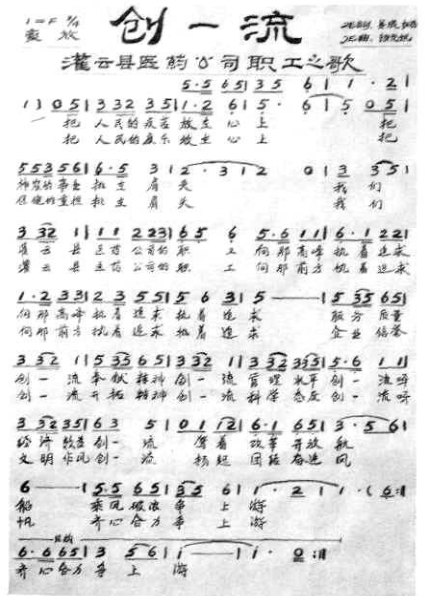 1=F 2/4
创一流
灌云县医药公司职工之歌
5·5 6 5 | 3 5 6 | 1 · 2 |
1) 0 5 | 3 3 2 3 5 | 1·2 6 | 5· 5 0 5 |
把 人民的疾苦放在 心上 把
把 人民的康乐放在 心上 把
5 5 3 5 6 | 6·5 3 | 2 · 3 | 2 0 | 3 3 5 |
事业担在 肩头 我们
保健的重担担在 肩头 我们
3 3 2 1 | 1 1 2 2 3 | 6 5 6 | 5·6 1 1 | 6·1 2 2 |
灌云县医药公司的职工 向那高峰执着追求
灌云县医药公司的职工 向那前方执着追求
1·2 3 3 | 2 3 5 5 | 5 6 3 | 5 — | 5 3 5 6 5 |
向那高峰执着追求执着追求 服务质量
向那前方执着追求执着追求 企业信誉
3 3 2 1 | 5 3 5 6 5 | 3 3 2 1 | 3 3 2 3 3 5 | 5·6 1 1 |
创一流奉献精神创一流管理水平创一流呀
创一流开拓精神创一流科学态度创一流呀
3 3 2 3 5 | 6 3 5 | 0 1 1 2 | 6·1 6 5 | 3 · 5 6 |
经济效益创一流 驾着改革开放航
文明作风创一流 扬起团结奋进风
6 — | 5·5 6 5 | 3 5 6 | 1 · 2 | 1 · (6 :||
船 乘风破浪争上游
帆 齐心合力争上游
6·6 6 5 | 3 5 6 | 1 — | 1 · 0 :||
齐心合力争上游